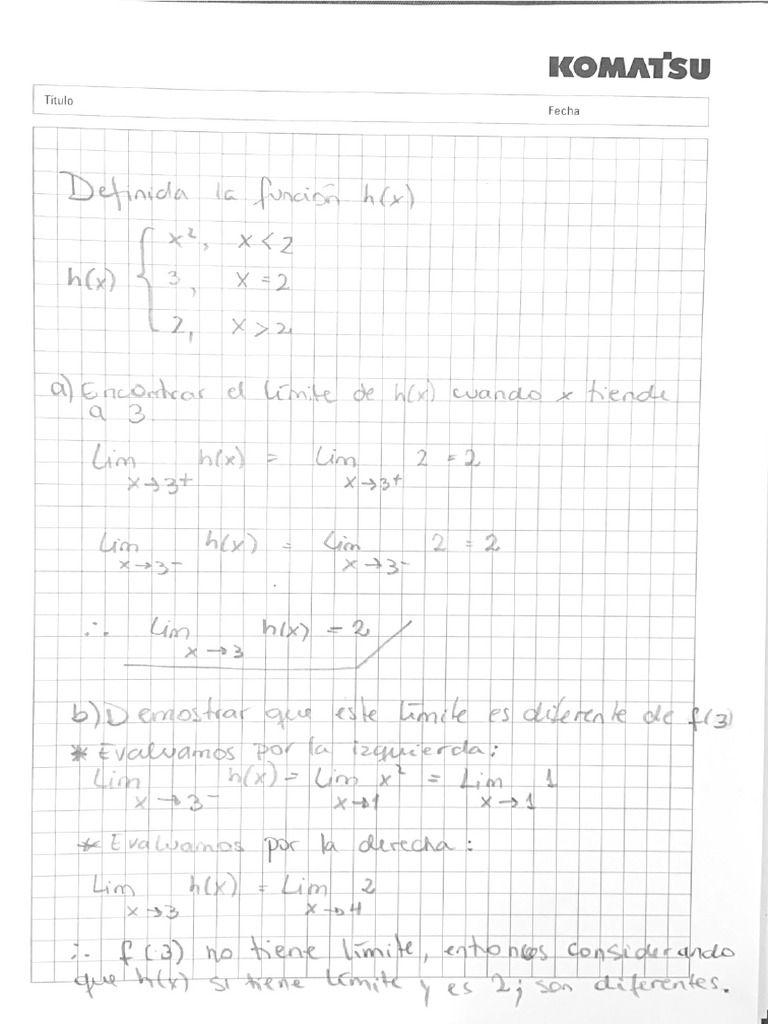 KOMATSU
Titulo
Fecha
Definida la función h(x)
h(x) { x², x < 2
3, x = 2
2, x > 2
a) Encontrar el límite de h(x) cuando x tiende
a 3
Lim x→3⁺ h(x) = Lim x→3⁺ 2 = 2
Lim x→3⁻ h(x) = Lim x→3⁻ 2 = 2
∴ Lim x→3 h(x) = 2
b) Demostrar que este límite es diferente de f(3)
* Evaluamos por la izquierda:
Lim x→3⁻ h(x) = Lim x→1 x² = Lim x→1 1
* Evaluamos por la derecha:
Lim x→3 h(x) = Lim x→4 2
∴ f(3) no tiene límite, entonces considerando
que h(x) si tiene límite y es 2; son diferentes.